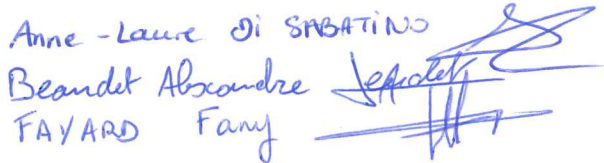 Anne-Laure Di SABATINO
Beaudet Alexandre
FAYARD Fany